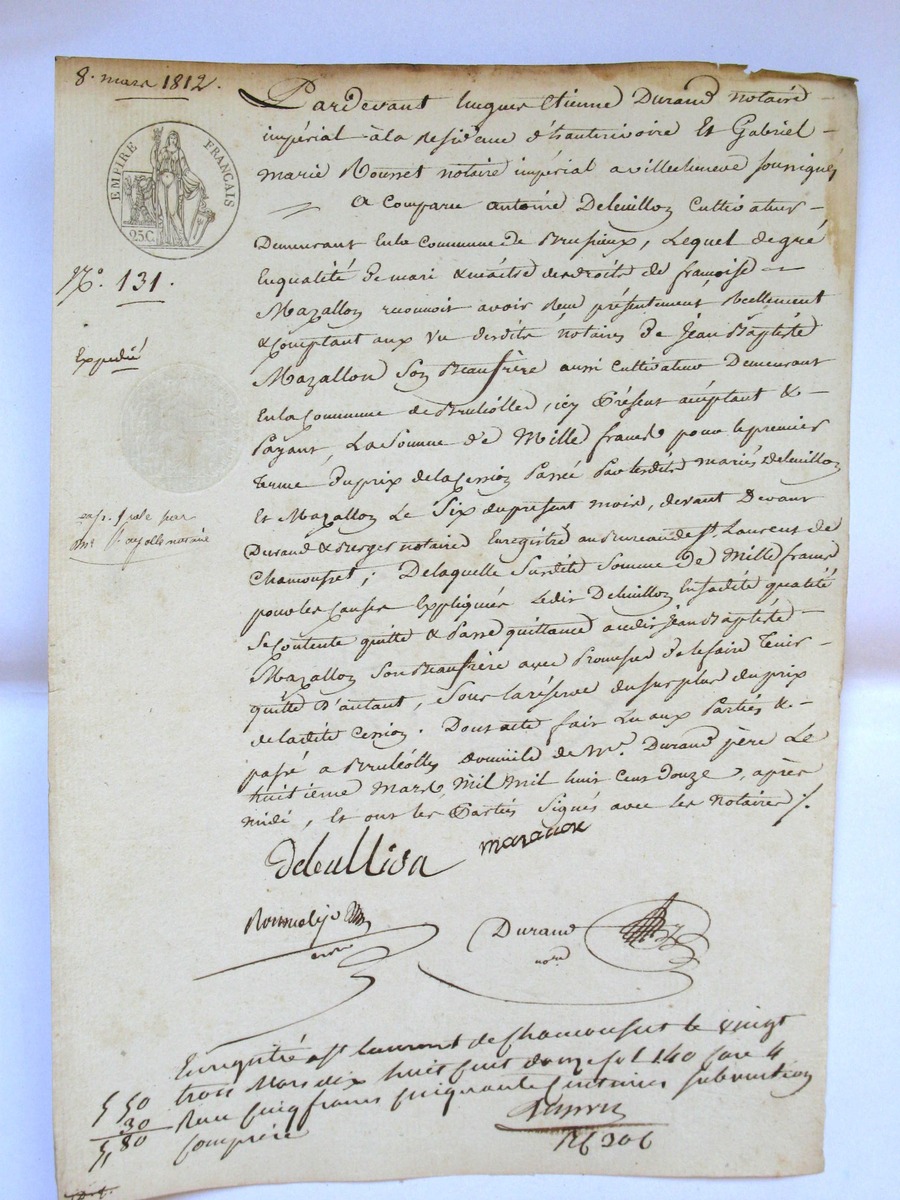 8. mars 1812.
EMPIRE FRANÇAIS
25C.
N.o 131.
Expedié
par
notaire
Pardevant hugues Etienne Durand notaire
impérial à la Residence d'hauterivoire Et Gabriel
marie notaire impérial a villecheneve soussignés
A Comparu antoine Deleuillon Cultivateur
Demeurant En la Commune de Brusieux, Lequel de gré
En qualité de mari & maître des droits de françoise
Mazallon reconnoit avoir Reçu présentement, Réellement
& Comptant aux Vu desdits notaires de Jean Baptiste
Mazallon Son Beaufrère aussi Cultivateur Demeurant
En la Commune de Brulliolle, icy Présent acceptant &
Payant, La Somme de Mille francs pour le premier
Terme du prix de la Cession Passée Par lesdits mariés Deleuillon
Et Mazallon Le Six du présent mois, devant Devant
Durand & Berger notaire Enregistré au Bureau de St. Laurent de
Chamousset ; De laquelle Susdite Somme de Mille francs
pour les Causes Expliquées Ledit Deleuillon En sadite qualité
Se Contente quitte & Passe quittance audit Jean Baptiste
Mazallon Son Beaufrère avec Promesse de le faire Tenir
quitte D'autant, Sous la réserve du surplus du prix
de ladite Cession. Dont acte fait Lu aux Parties &
passé a Brulliolle domicile de Mr. Durand père Le
huitième Mars, Mil Mil huit Cent Douze, après
midi, Et ont les Parties Signés avec les notaires
deleullion mazallon
Durand
nore
Enregistré a St laurent de chamousset le vingt
trois Mars dix huit cent douze fol 140 case 4
5 50 Reçu cinq francs cinquante centimes subvention
30 comprise
5, 80